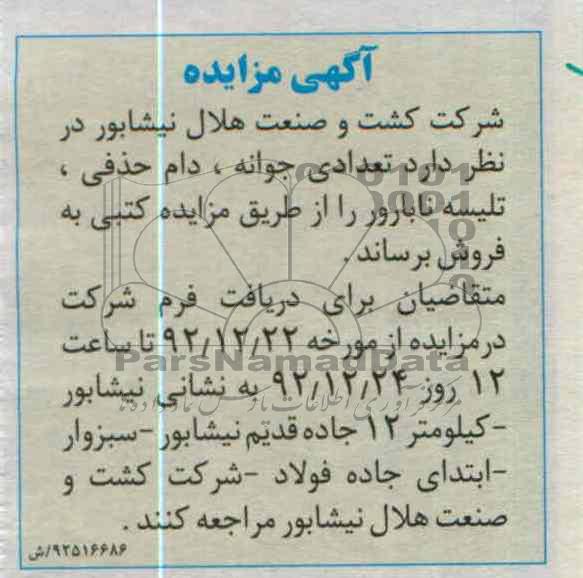 آگهی مزایده
شرکت کشت و صنعت هلال نیشابور در
نظر دارد تعدادی جوانه ، دام حذفی ،
تلیسه نابارور را از طریق مزایده کتبی به
فروش برساند .
متقاضیان برای دریافت فرم شرکت
درمزایده از مورخه ۹۲/۱۲/۲۲ تا ساعت
ParsNamadData
۱۲ روز ۹۲/۱۲/۲۴ به نشانی نیشابور
-کیلومتر ۱۲ جاده قدیم نیشابور -سبزوار
-ابتدای جاده فولاد -شرکت کشت و
صنعت هلال نیشابور مراجعه کنند .
۹۲۵۱۶۶۸۶/ش